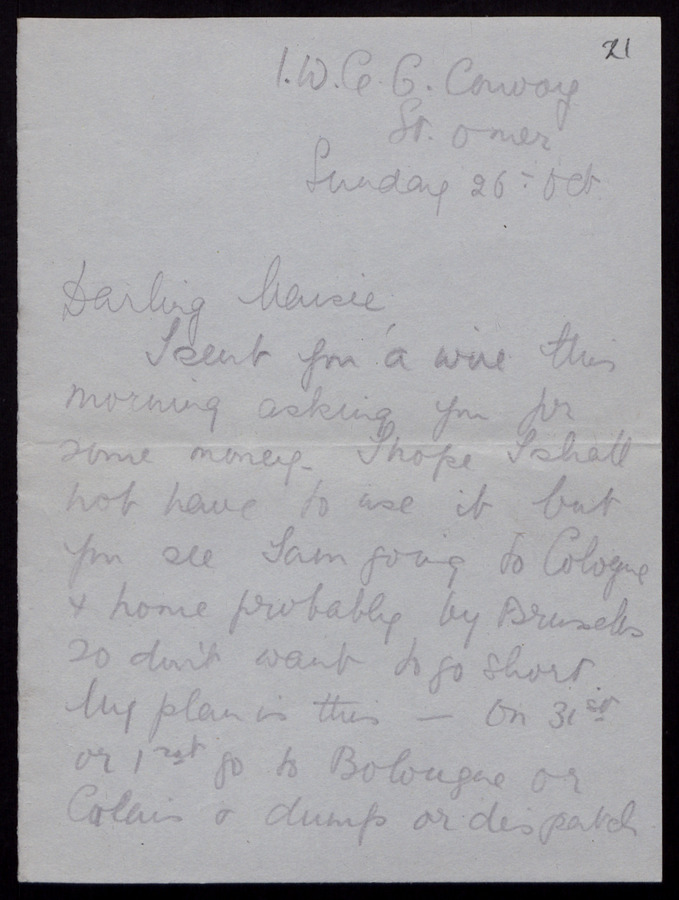 21
I.W.G.C. Convoy
St. Omer
Sunday 26th Oct
Darling Maisie
I sent you a wire this
morning asking you for
some money - I hope I shall
not have to use it but
you see I am going to Cologne
& home probably by Brussels
so don't want to go short.
My plan is this — On 31st
or 1rst go to Bolougne or
Calais & dump or despatch